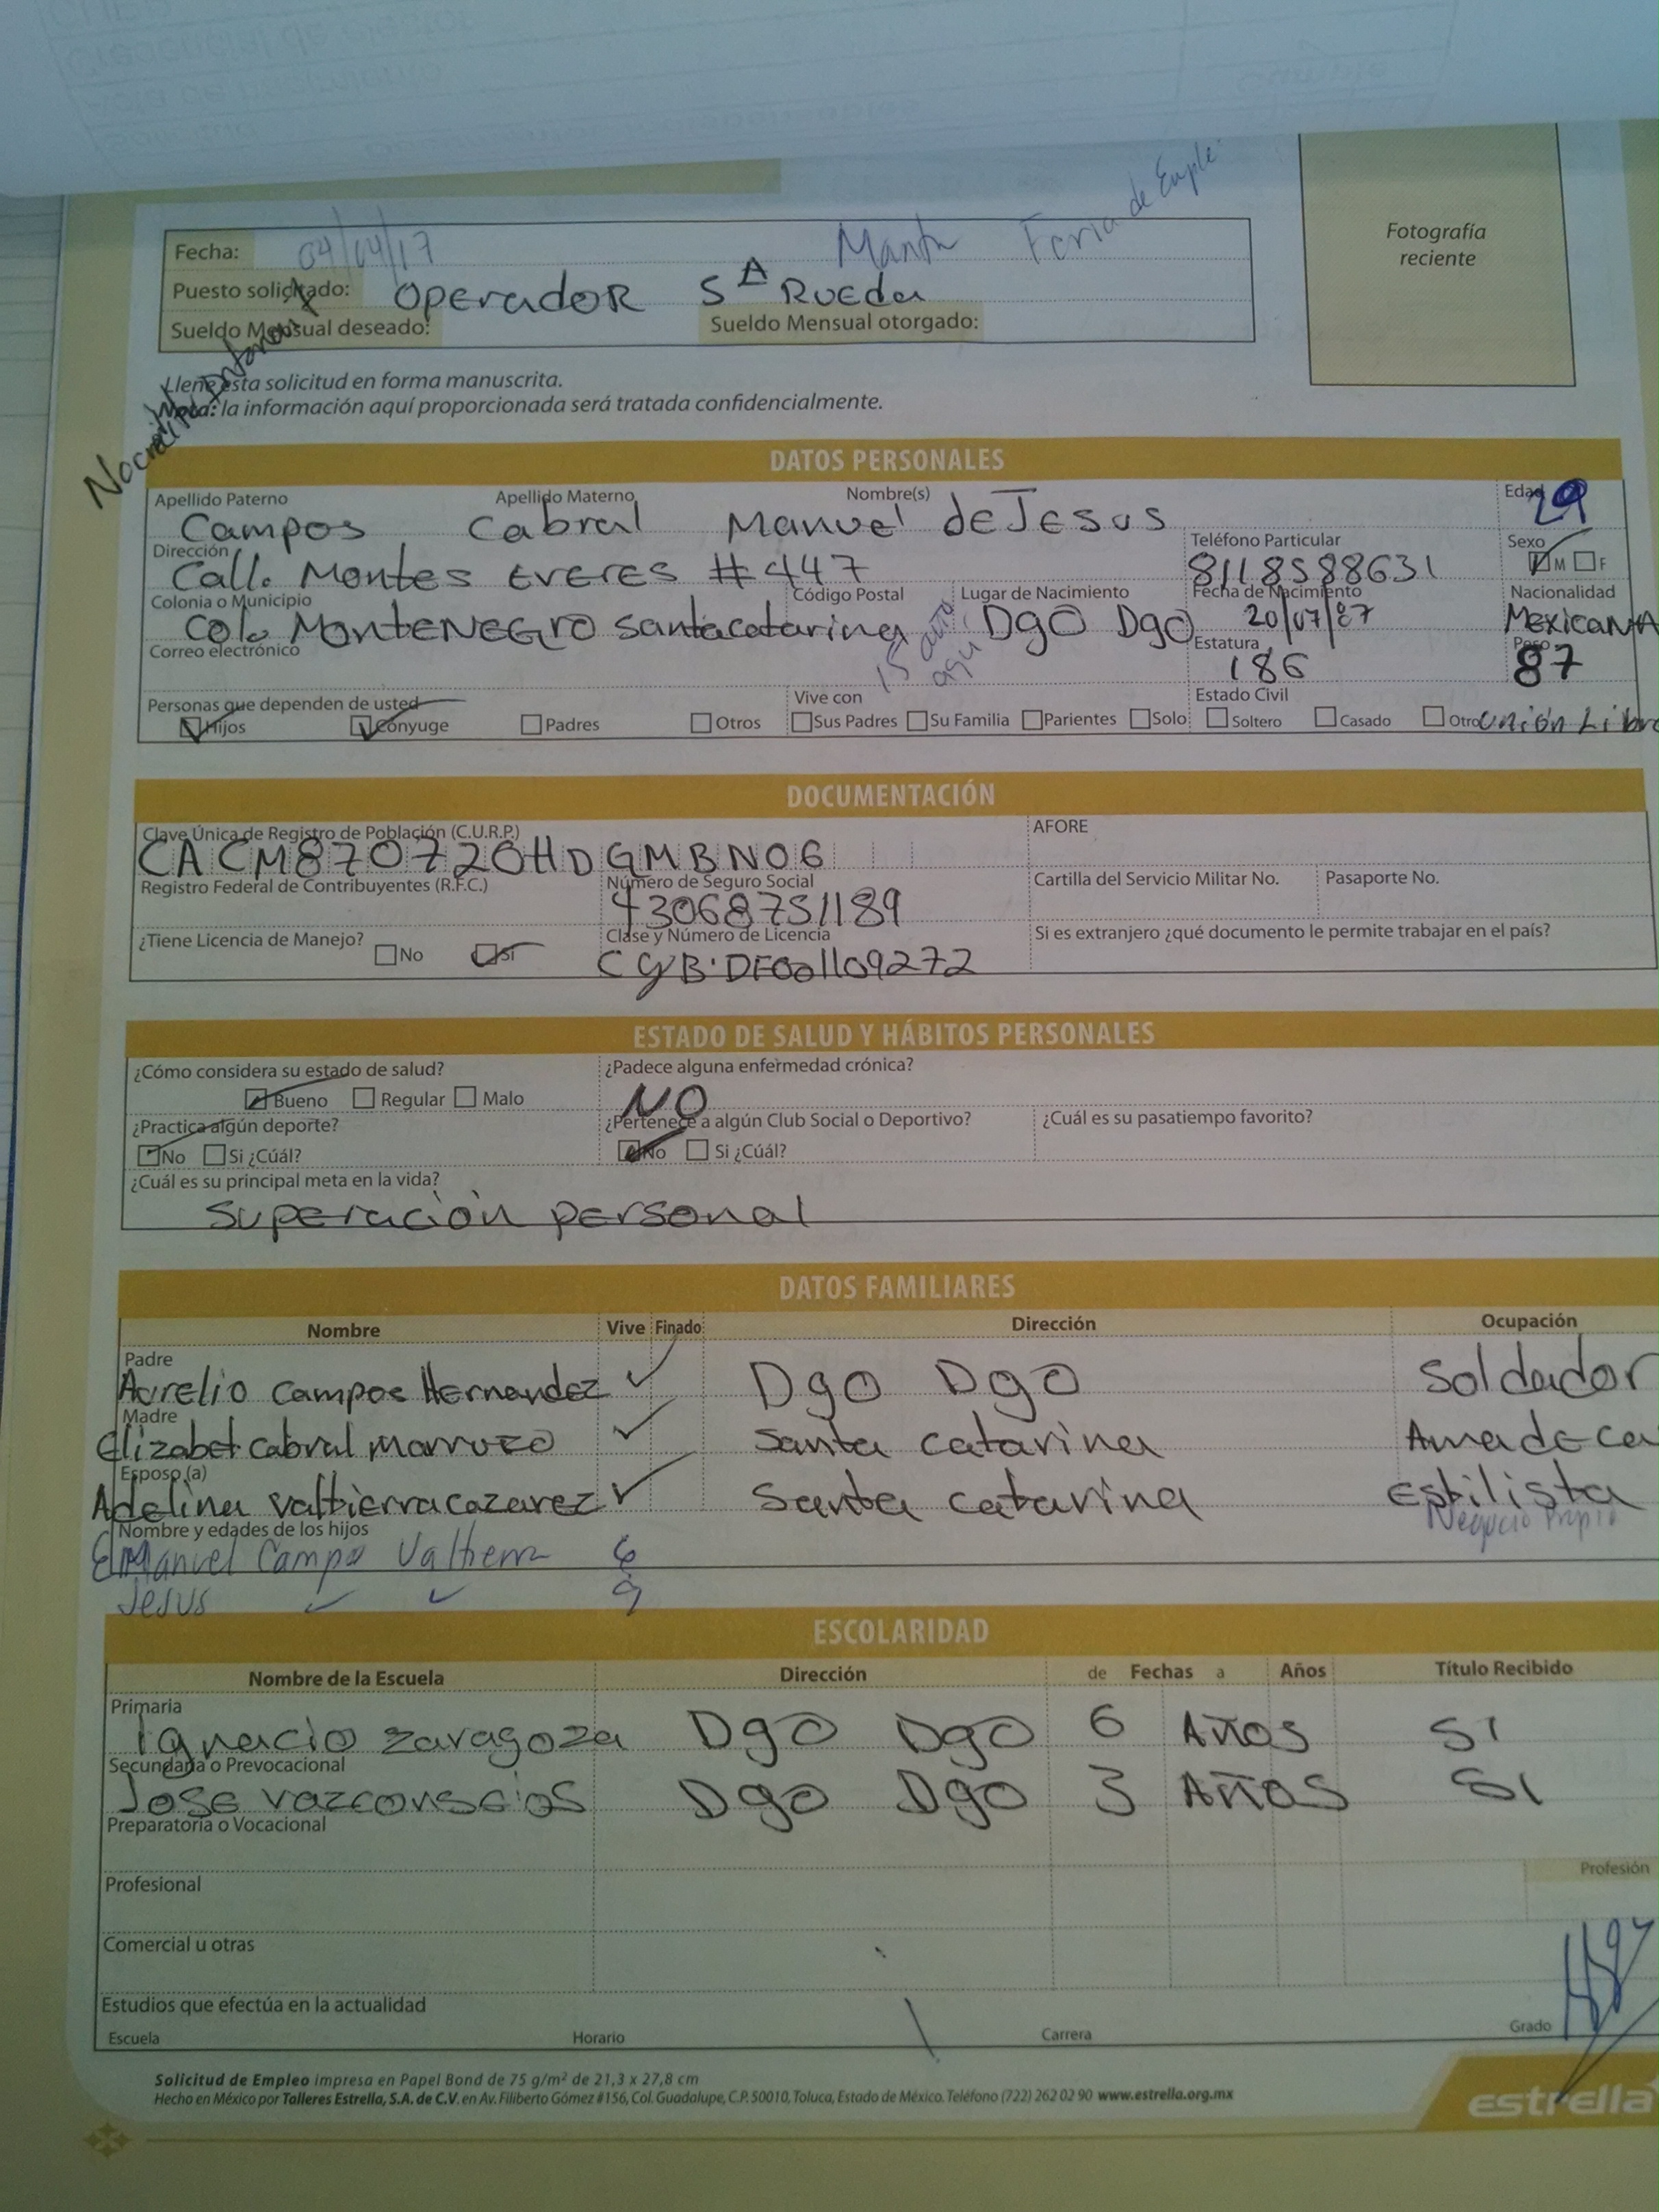 Fecha: 04/04/17 Feria de Emple
Puesto solicitado: OperadoR 5A RUEda
Sueldo Mensual deseado: Sueldo Mensual otorgado:
Fotografía
reciente
Llene esta solicitud en forma manuscrita.
Nota: la información aquí proporcionada será tratada confidencialmente.
DATOS PERSONALES
Apellido Paterno Apellido Materno Nombre(s) Edad
Campos Cabral Manuel de Jesus 29
Dirección Teléfono Particular Sexo
Call. Montes EVERES #447 8118588631 M F
Colonia o Municipio Código Postal Lugar de Nacimiento Fecha de Nacimiento Nacionalidad
Col. MONTENEGRO santacatarina 15 Dgo Dgo 20/07/87 MexicaNA
Correo electrónico Estatura Peso
186 87
Personas que dependen de usted Vive con Estado Civil
Hijos Cónyuge Padres Otros Sus Padres Su Familia Parientes Solo Soltero Casado Otro unión Libre
DOCUMENTACIÓN
Clave Única de Registro de Población (C.U.R.P.) AFORE
CACM870720HDGMBN06
Registro Federal de Contribuyentes (R.F.C.) Número de Seguro Social Cartilla del Servicio Militar No. Pasaporte No.
43068751189
¿Tiene Licencia de Manejo? No Sí Clase y Número de Licencia Si es extranjero ¿qué documento le permite trabajar en el país?
CyB. DF001109272
ESTADO DE SALUD Y HÁBITOS PERSONALES
¿Cómo considera su estado de salud? ¿Padece alguna enfermedad crónica?
Bueno Regular Malo NO
¿Practica algún deporte? ¿Pertenece a algún Club Social o Deportivo? ¿Cuál es su pasatiempo favorito?
No Si ¿Cúál? No Si ¿Cúál?
¿Cuál es su principal meta en la vida?
superación personal
DATOS FAMILIARES
Nombre Vive Finado Dirección Ocupación
Padre
Aurelio campos Hernandez Dgo Dgo Soldador
Madre
Elizabet cabral marrufo Santa catarina AmadEca
Esposo (a)
Adelina valtierra cazarez Santa catarina Estilista
Nombre y edades de los hijos Negocio Propio
EManuel Campos Valtierra 6
Jesus 9
ESCOLARIDAD
Nombre de la Escuela Dirección de Fechas a Años Título Recibido
Primaria
Ignacio zaragoza Dgo Dgo 6 Años SI
Secundaria o Prevocacional
Jose vazconselos Dgo Dgo 3 AÑos SI
Preparatoria o Vocacional
Profesional Profesión
Comercial u otras
Estudios que efectúa en la actualidad
Escuela Horario Carrera Grado
Solicitud de Empleo impresa en Papel Bond de 75 g/m² de 21,3 x 27,8 cm
Hecho en México por Talleres Estrella, S.A. de C.V. en Av. Filiberto Gómez #156, Col. Guadalupe, C.P. 50010, Toluca, Estado de México. Teléfono (722) 262 02 90 www.estrella.org.mx
estrella